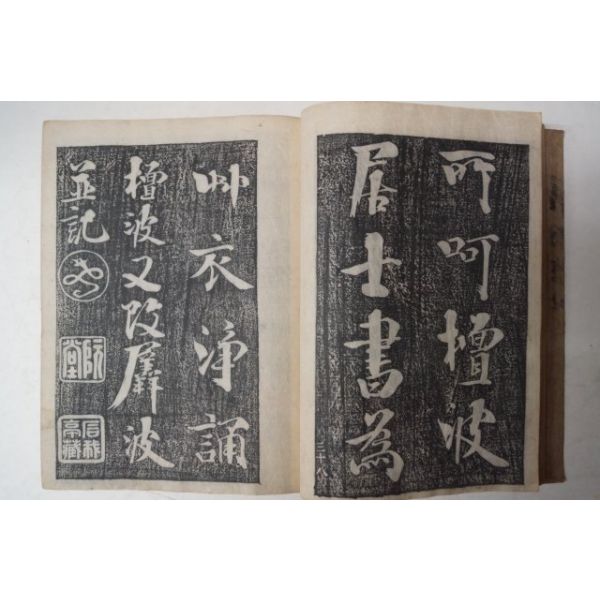 呵呵檀波
居士書為
三十八
艸衣淨誦
檀波又改羼波
並記
阮堂